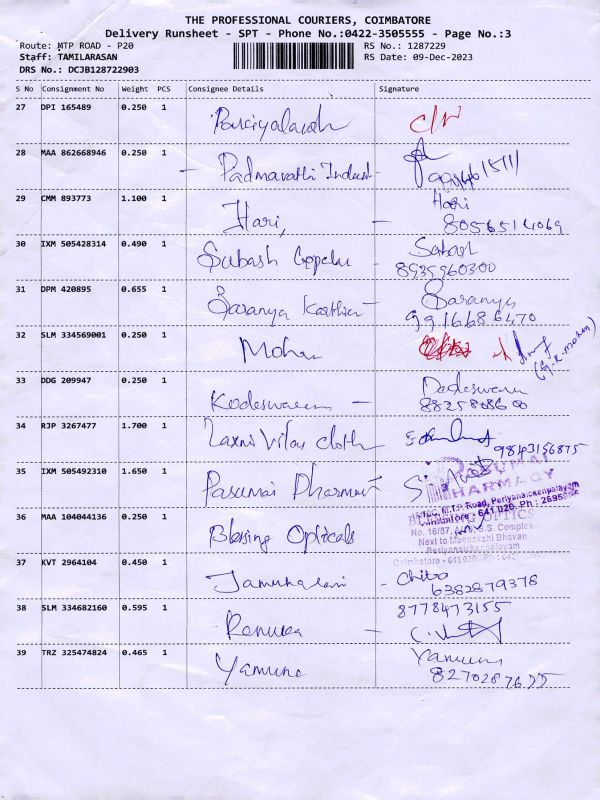 THE PROFESSIONAL COURIERS, COIMBATORE
Delivery Runsheet - SPT - Phone No.:0422-3505555 - Page No.:3
Route: MTP ROAD - P20 RS No.: 1287229
Staff: TAMILARASAN RS Date: 09-Dec-2023
DRS No.: DCJB128722903
S No Consignment No Weight PCS Consignee Details Signature
27 DPI 165489 0.250 1
28 MAA 862668946 0.250 1 Padmavathi Indust-
29 CMM 893773 1.100 1 Hari, - Hari
8056514069
30 IXM 505428314 0.490 1 Subash Gopelu Subash
8939960300
31 DPM 420895 0.655 1 Saranya Karthi - Saranya
9916686470
32 SLM 334569001 0.250 1 Mohan (G.R.Mohan)
33 DDG 209947 0.250 1 Kodeswaran -
34 RJP 3267477 1.700 1 Laxmi Vilas cloth 9843156875
35 IXM 505492310 1.650 1 Pasumai Pharmacy
PASUMAI
PHARMACY
M.T.P. Road, Periyanaickenpalayam
Coimbatore - 641 020. Ph :
36 MAA 104044136 0.250 1 Blessing Opticals
OPTICS
No. 16/87, S.S. Complex
Next to Meenakshi Bhavan
Periyanaickenpalayam
Coimbatore - 641 020. Ph : 642
37 KVT 2964104 0.450 1 Jamunarani - Chitra
6382879378
38 SLM 334682160 0.595 1 Renuka - 8778473155
39 TRZ 325474824 0.465 1 Yamuna Yamuna